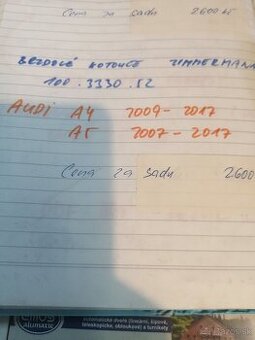 Cena za sadu 2600 Kč
BRZDOVÉ KOTOUČE ZIMMERMANN
100.3330.52
AUDI A4 2009-2017
A5 2007-2017
Cena za sadu 2600
ALUMATIC
automatické dveře (lineární, šípové,
teleskopické, obloukové) a turnikety